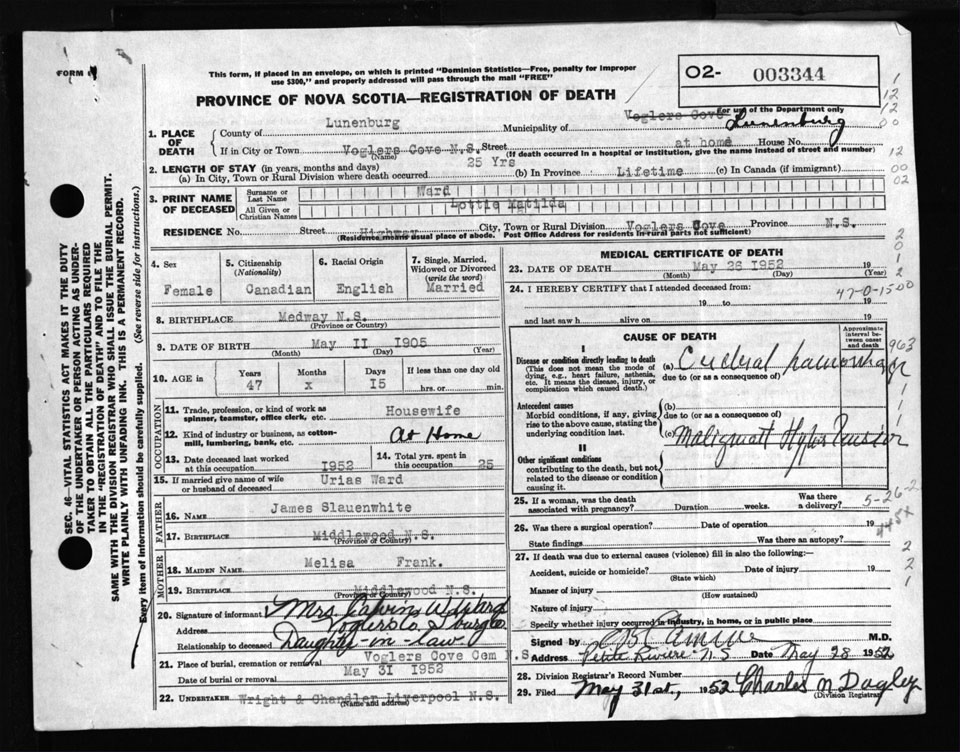 FORM
This form, if placed in an envelope, on which is printed "Dominion Statistics—Free, penalty for improper
use $300," and properly addressed will pass through the mail "FREE"
O2- 003344
For use of the Department only
PROVINCE OF NOVA SCOTIA—REGISTRATION OF DEATH
1. PLACE OF DEATH
County of Lunenburg Municipality of Voglers Cove Lunenburg
If in City or Town Voglers Cove N.S. Street at home House No.
(Name) (If death occurred in a hospital or institution, give the name instead of street and number)
2. LENGTH OF STAY (in years, months and days)
(a) In City, Town or Rural Division where death occurred 25 Yrs (b) In Province Lifetime (c) In Canada (if immigrant)
3. PRINT NAME OF DECEASED
Surname or Last Name Ward
All Given or Christian Names Lottie Matilda
RESIDENCE No. Street Highway City, Town or Rural Division Voglers Cove Province N.S.
(Residence means usual place of abode. Post Office Address for residents in rural parts not sufficient)
4. Sex
Female
5. Citizenship
(Nationality)
Canadian
6. Racial Origin
English
7. Single, Married,
Widowed or Divorced
(write the word)
Married
8. BIRTHPLACE Medway N.S.
(Province or Country)
9. DATE OF BIRTH May II I905
(Month) (Day) (Year)
10. AGE
Years Months Days If less than one day old
47 x I5 hrs. or min.
OCCUPATION
11. Trade, profession, or kind of work as
spinner, teamster, office clerk, etc. Housewife
12. Kind of industry or business, as cotton-
mill, lumbering, bank, etc. At Home
13. Date deceased last worked
at this occupation I952
14. Total yrs. spent
in this occupation 25
15. If married give name of wife
or husband of deceased Urias Ward
FATHER
16. NAME James Slauenwhite
17. BIRTHPLACE Middlewood N.S.
(Province or Country)
MOTHER
18. MAIDEN NAME Melisa Frank.
19. BIRTHPLACE Middlewood N.S.
(Province or Country)
20. Signature of informant Mrs. Calvin Ward
Address Voglers Co
Relationship to deceased Daughter-in-law
21. Place of burial, cremation or removal Voglers Cove Cem N.S.
Date of burial or removal May 3I I952
22. UNDERTAKER Wright & Chandler Liverpool N.S.
(Name and address)
MEDICAL CERTIFICATE OF DEATH
23. DATE OF DEATH May 26 I952 19
(Month) (Day) (Year)
24. I HEREBY CERTIFY that I attended deceased from:
19 to 19
and last saw h alive on 19
47-0-15
CAUSE OF DEATH
Approximate
interval be-
tween onset
and death
I
Disease or condition directly leading to death
(This does not mean the mode of
dying, e.g., heart failure, asthenia,
etc. It means the disease, injury, or
complication which caused death.)
(a)
due to (or as a consequence of)
Antecedent causes
Morbid conditions, if any, giving
rise to the above cause, stating the
underlying condition last.
(b)
due to (or as a consequence of)
(c) Malignant Hypertension
II
Other significant conditions
contributing to the death, but not
related to the disease or condition
causing it.
25. If a woman, was the death
associated with pregnancy? Duration weeks. Was there
a delivery?
5-26-2
26. Was there a surgical operation? Date of operation 19
State findings Was there an autopsy?
27. If death was due to external causes (violence) fill in also the following:
Accident, suicide or homicide? Date of injury 19
(State which)
Manner of injury
(How sustained)
Nature of injury
Specify whether injury occurred in industry, in home, or in public place
Signed by M.D.
Address Petite Riviere N.S Date May 28 1952
28. Division Registrar's Record Number
29. Filed May 31st, 1952 Charles N Dagley
(Division Registrar)
SEC. 46—VITAL STATISTICS ACT MAKES IT THE DUTY
OF THE UNDERTAKER OR PERSON ACTING AS UNDER-
TAKER TO OBTAIN ALL THE PARTICULARS REQUIRED
IN THE "REGISTRATION OF DEATH" AND TO FILE THE
SAME WITH THE DIVISION REGISTRAR WHO SHALL ISSUE THE BURIAL PERMIT.
WRITE PLAINLY WITH UNFADING INK. THIS IS A PERMANENT RECORD.
Every item of information should be carefully supplied. (See reverse side for instructions.)